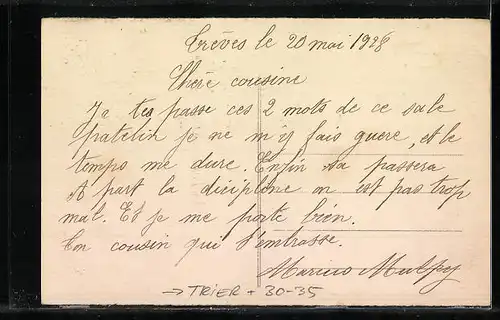 Trèves le 20 mai 1928
Chère cousine
Je tes passe ces 2 mots de ce sale
patelin je ne m'y fais guere, et le
temps me dure. Enfin sa passera
A part la diciplene on est pas trop
mal. Et je me porte bien.
Ton cousin qui t'embrasse.
→ TRIER + 30-35